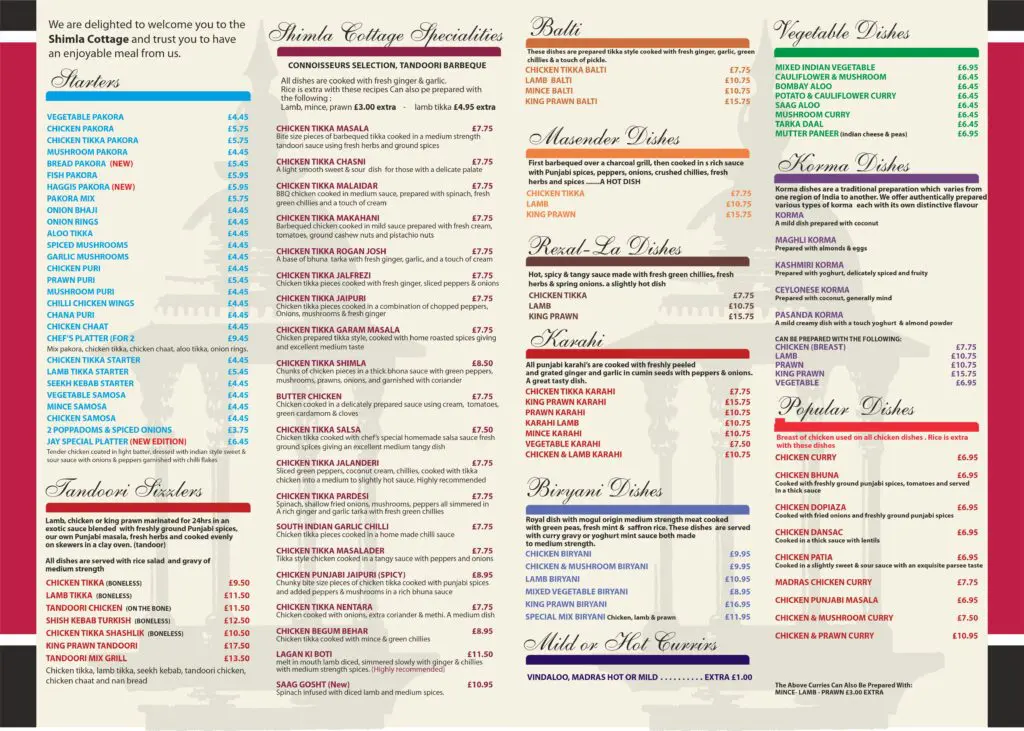 We are delighted to welcome you to the
Shimla Cottage and trust you to have
an enjoyable meal from us.
Starters
VEGETABLE PAKORA £4.45
CHICKEN PAKORA £5.75
CHICKEN TIKKA PAKORA £5.75
MUSHROOM PAKORA £4.45
BREAD PAKORA (NEW) £5.45
FISH PAKORA £5.95
HAGGIS PAKORA (NEW) £5.95
PAKORA MIX £5.75
ONION BHAJI £4.45
ONION RINGS £4.45
ALOO TIKKA £4.45
SPICED MUSHROOMS £4.45
GARLIC MUSHROOMS £4.45
CHICKEN PURI £4.45
PRAWN PURI £5.45
MUSHROOM PURI £4.45
CHILLI CHICKEN WINGS £4.45
CHANA PURI £4.45
CHICKEN CHAAT £4.45
CHEF'S PLATTER (FOR 2 £9.45
Mix pakora, chicken tikka, chicken chaat, aloo tikka, onion rings.
CHICKEN TIKKA STARTER £4.45
LAMB TIKKA STARTER £5.45
SEEKH KEBAB STARTER £4.45
VEGETABLE SAMOSA £4.45
MINCE SAMOSA £4.45
CHICKEN SAMOSA £4.45
2 POPPADOMS & SPICED ONIONS £3.75
JAY SPECIAL PLATTER (NEW EDITION) £6.45
Tender chicken coated in light batter, dressed with indian style sweet &
sour sauce with onions & peppers garnished with chilli flakes
Tandoori Sizzlers
Lamb, chicken or king prawn marinated for 24hrs in an
exotic sauce blended with freshly ground Punjabi spices,
our own Punjabi masala, fresh herbs and cooked evenly
on skewers in a clay oven. (tandoor)
All dishes are served with rice salad and gravy of
medium strength
CHICKEN TIKKA (BONELESS) £9.50
LAMB TIKKA (BONELESS) £11.50
TANDOORI CHICKEN (ON THE BONE) £11.50
SHISH KEBAB TURKISH (BONELESS) £12.50
CHICKEN TIKKA SHASHLIK (BONELESS) £10.50
KING PRAWN TANDOORI £17.50
TANDOORI MIX GRILL £13.50
Chicken tikka, lamb tikka, seekh kebab, tandoori chicken,
chicken chaat and nan bread
Shimla Cottage Specialities
CONNOISSEURS SELECTION, TANDOORI BARBEQUE
All dishes are cooked with fresh ginger & garlic.
Rice is extra with these recipes Can also pe prepared with
the following :
Lamb, mince, prawn £3.00 extra - lamb tikka £4.95 extra
CHICKEN TIKKA MASALA £7.75
Bite size pieces of barbequed tikka cooked in a medium strength
tandoori sauce using fresh herbs and ground spices
CHICKEN TIKKA CHASNI £7.75
A light smooth sweet & sour dish for those with a delicate palate
CHICKEN TIKKA MALAIDAR £7.75
BBQ chicken cooked in medium sauce, prepared with spinach, fresh
green chillies and a touch of cream
CHICKEN TIKKA MAKAHANI £7.75
Barbequed chicken cooked in mild sauce prepared with fresh cream,
tomatoes, ground cashew nuts and pistachio nuts
CHICKEN TIKKA ROGAN JOSH £7.75
A base of bhuna tarka with fresh ginger, garlic, and a touch of cream
CHICKEN TIKKA JALFREZI £7.75
Chicken tikka pieces cooked with fresh ginger, sliced peppers & onions
CHICKEN TIKKA JAIPURI £7.75
Chicken tikka pieces cooked in a combination of chopped peppers,
Onions, mushrooms & fresh ginger
CHICKEN TIKKA GARAM MASALA £7.75
Chicken prepared tikka style, cooked with home roasted spices giving
and excellent medium taste
CHICKEN TIKKA SHIMLA £8.50
Chunks of chicken pieces in a thick bhona sauce with green peppers,
mushrooms, prawns, onions, and garnished with coriander
BUTTER CHICKEN £7.75
Chicken cooked in a delicately prepared sauce using cream, tomatoes,
green cardamom & cloves
CHICKEN TIKKA SALSA £7.50
Chicken tikka cooked with chef's special homemade salsa sauce fresh
ground spices giving an excellent medium tangy dish
CHICKEN TIKKA JALANDERI £7.75
Sliced green peppers, coconut cream, chillies, cooked with tikka
chicken into a medium to slightly hot sauce. Highly recommended
CHICKEN TIKKA PARDESI £7.75
Spinach, shallow fried onions, mushrooms, peppers all simmered in
A rich ginger and garlic tarka with fresh green chillies
SOUTH INDIAN GARLIC CHILLI £7.75
Chicken tikka pieces cooked in a home made chilli sauce
CHICKEN TIKKA MASALADER £7.75
Tikka style chicken cooked in a tangy sauce with peppers and onions
CHICKEN PUNJABI JAIPURI (SPICY) £8.95
Chunky bite size pieces of chicken tikka cooked with punjabi spices
and added peppers & mushrooms in a rich bhuna sauce
CHICKEN TIKKA NENTARA £7.75
Chicken cooked with onions, extra coriander & methi. A medium dish
CHICKEN BEGUM BEHAR £8.95
Chicken tikka cooked with mince & green chillies
LAGAN KI BOTI £11.50
melt in mouth lamb diced, simmered slowly with ginger & chillies
with medium strength spices. (Highly recommended)
SAAG GOSHT (New) £10.95
Spinach infused with diced lamb and medium spices.
Balti
These dishes are prepared tikka style cooked with fresh ginger, garlic, green
chillies & a touch of pickle.
CHICKEN TIKKA BALTI £7.75
LAMB BALTI £10.75
MINCE BALTI £10.75
KING PRAWN BALTI £15.75
Masender Dishes
First barbequed over a charcoal grill, then cooked in s rich sauce
with Punjabi spices, peppers, onions, crushed chillies, fresh
herbs and spices .......A HOT DISH
CHICKEN TIKKA £7.75
LAMB £10.75
KING PRAWN £15.75
Rezal-La Dishes
Hot, spicy & tangy sauce made with fresh green chillies, fresh
herbs & spring onions. a slightly hot dish
CHICKEN TIKKA £7.75
LAMB £10.75
KING PRAWN £15.75
Karahi
All punjabi karahi's are cooked with freshly peeled
and grated ginger and garlic in cumin seeds with peppers & onions.
A great tasty dish.
CHICKEN TIKKA KARAHI £7.75
KING PRAWN KARAHI £15.75
PRAWN KARAHI £10.75
KARAHI LAMB £10.75
MINCE KARAHI £10.75
VEGETABLE KARAHI £7.50
CHICKEN & LAMB KARAHI £10.75
Biryani Dishes
Royal dish with mogul origin medium strength meat cooked
with green peas, fresh mint & saffron rice. These dishes are served
with curry gravy or yoghurt mint sauce both made
to medium strength.
CHICKEN BIRYANI £9.95
CHICKEN & MUSHROOM BIRYANI £9.95
LAMB BIRYANI £10.95
MIXED VEGETABLE BIRYANI £8.95
KING PRAWN BIRYANI £16.95
SPECIAL MIX BIRYANI Chicken, lamb & prawn £11.95
Mild or Hot Currirs
VINDALOO, MADRAS HOT OR MILD . . . . . . . . . . EXTRA £1.00
Vegetable Dishes
MIXED INDIAN VEGETABLE £6.95
CAULIFLOWER & MUSHROOM £6.45
BOMBAY ALOO £6.45
POTATO & CAULIFLOWER CURRY £6.45
SAAG ALOO £6.45
MUSHROOM CURRY £6.45
TARKA DAAL £6.45
MUTTER PANEER (indian cheese & peas) £6.95
Korma Dishes
Korma dishes are a traditional preparation which varies from
one region of India to another. We offer authentically prepared
various types of korma each with its own distinctive flavour
KORMA
A mild dish prepared with coconut
MAGHLI KORMA
Prepared with almonds & eggs
KASHMIRI KORMA
Prepared with yoghurt, delicately spiced and fruity
CEYLONESE KORMA
Prepared with coconut, generally mind
PASANDA KORMA
A mild creamy dish with a touch yoghurt & almond powder
CAN BE PREPARED WITH THE FOLLOWING:
CHICKEN (BREAST) £7.75
LAMB £10.75
PRAWN £10.75
KING PRAWN £15.75
VEGETABLE £6.95
Popular Dishes
Breast of chicken used on all chicken dishes . Rice is extra
with these dishes
CHICKEN CURRY £6.95
CHICKEN BHUNA £6.95
Cooked with freshly ground punjabi spices, tomatoes and served
In a thick sauce
CHICKEN DOPIAZA £6.95
Cooked with fried onions and freshly ground punjabi spices
CHICKEN DANSAC £6.95
Cooked in a thick sauce with lentils
CHICKEN PATIA £6.95
Cooked in a slightly sweet & sour sauce with an exquisite parsee taste
MADRAS CHICKEN CURRY £7.75
CHICKEN PUNJABI MASALA £6.95
CHICKEN & MUSHROOM CURRY £7.50
CHICKEN & PRAWN CURRY £10.95
The Above Curries Can Also Be Prepared With:
MINCE- LAMB - PRAWN £3.00 EXTRA